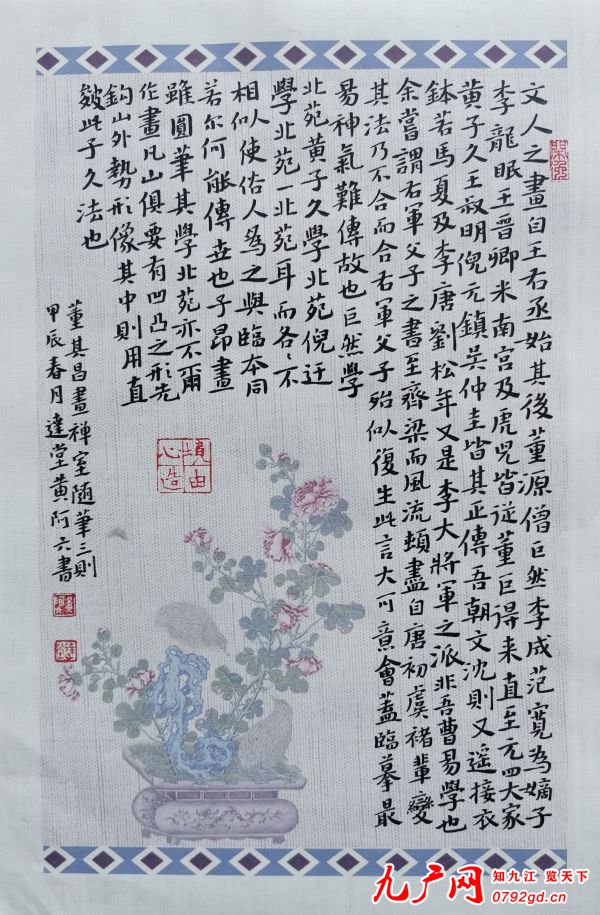 文人之畫自王右丞始其後董源僧巨然李成范寬為嫡子
李龍眠王晉卿米南宮及虎兒皆從董巨得来直至元四大家
黃子久王叔明倪元鎮吳仲圭皆其正傳吾朝文沈則又遥接衣
鉢若馬夏及李唐劉松年又是李大將軍之派非吾曹易學也
余嘗謂右軍父子之書至齊梁而風流頓盡自唐初虞褚輩變
其法乃不合而合右軍父子殆似復生此言大可意會蓋臨摹最
易神氣難傳故也巨然學
北苑黃子久學北苑倪迂
學北苑一北苑耳而各〻不
相似使俗人為之與臨本同
若尔何能傳世也子昂畫
雖圓筆其學北苑亦不爾
作畫凡山俱要有凹凸之形先
鈎山外勢形像其中則用直
皴此子久法也
董其昌畫禪室隨筆三則
甲辰春月達堂黃阿六書
境由心造
九户网
知九江 览天下
0792gd.cn